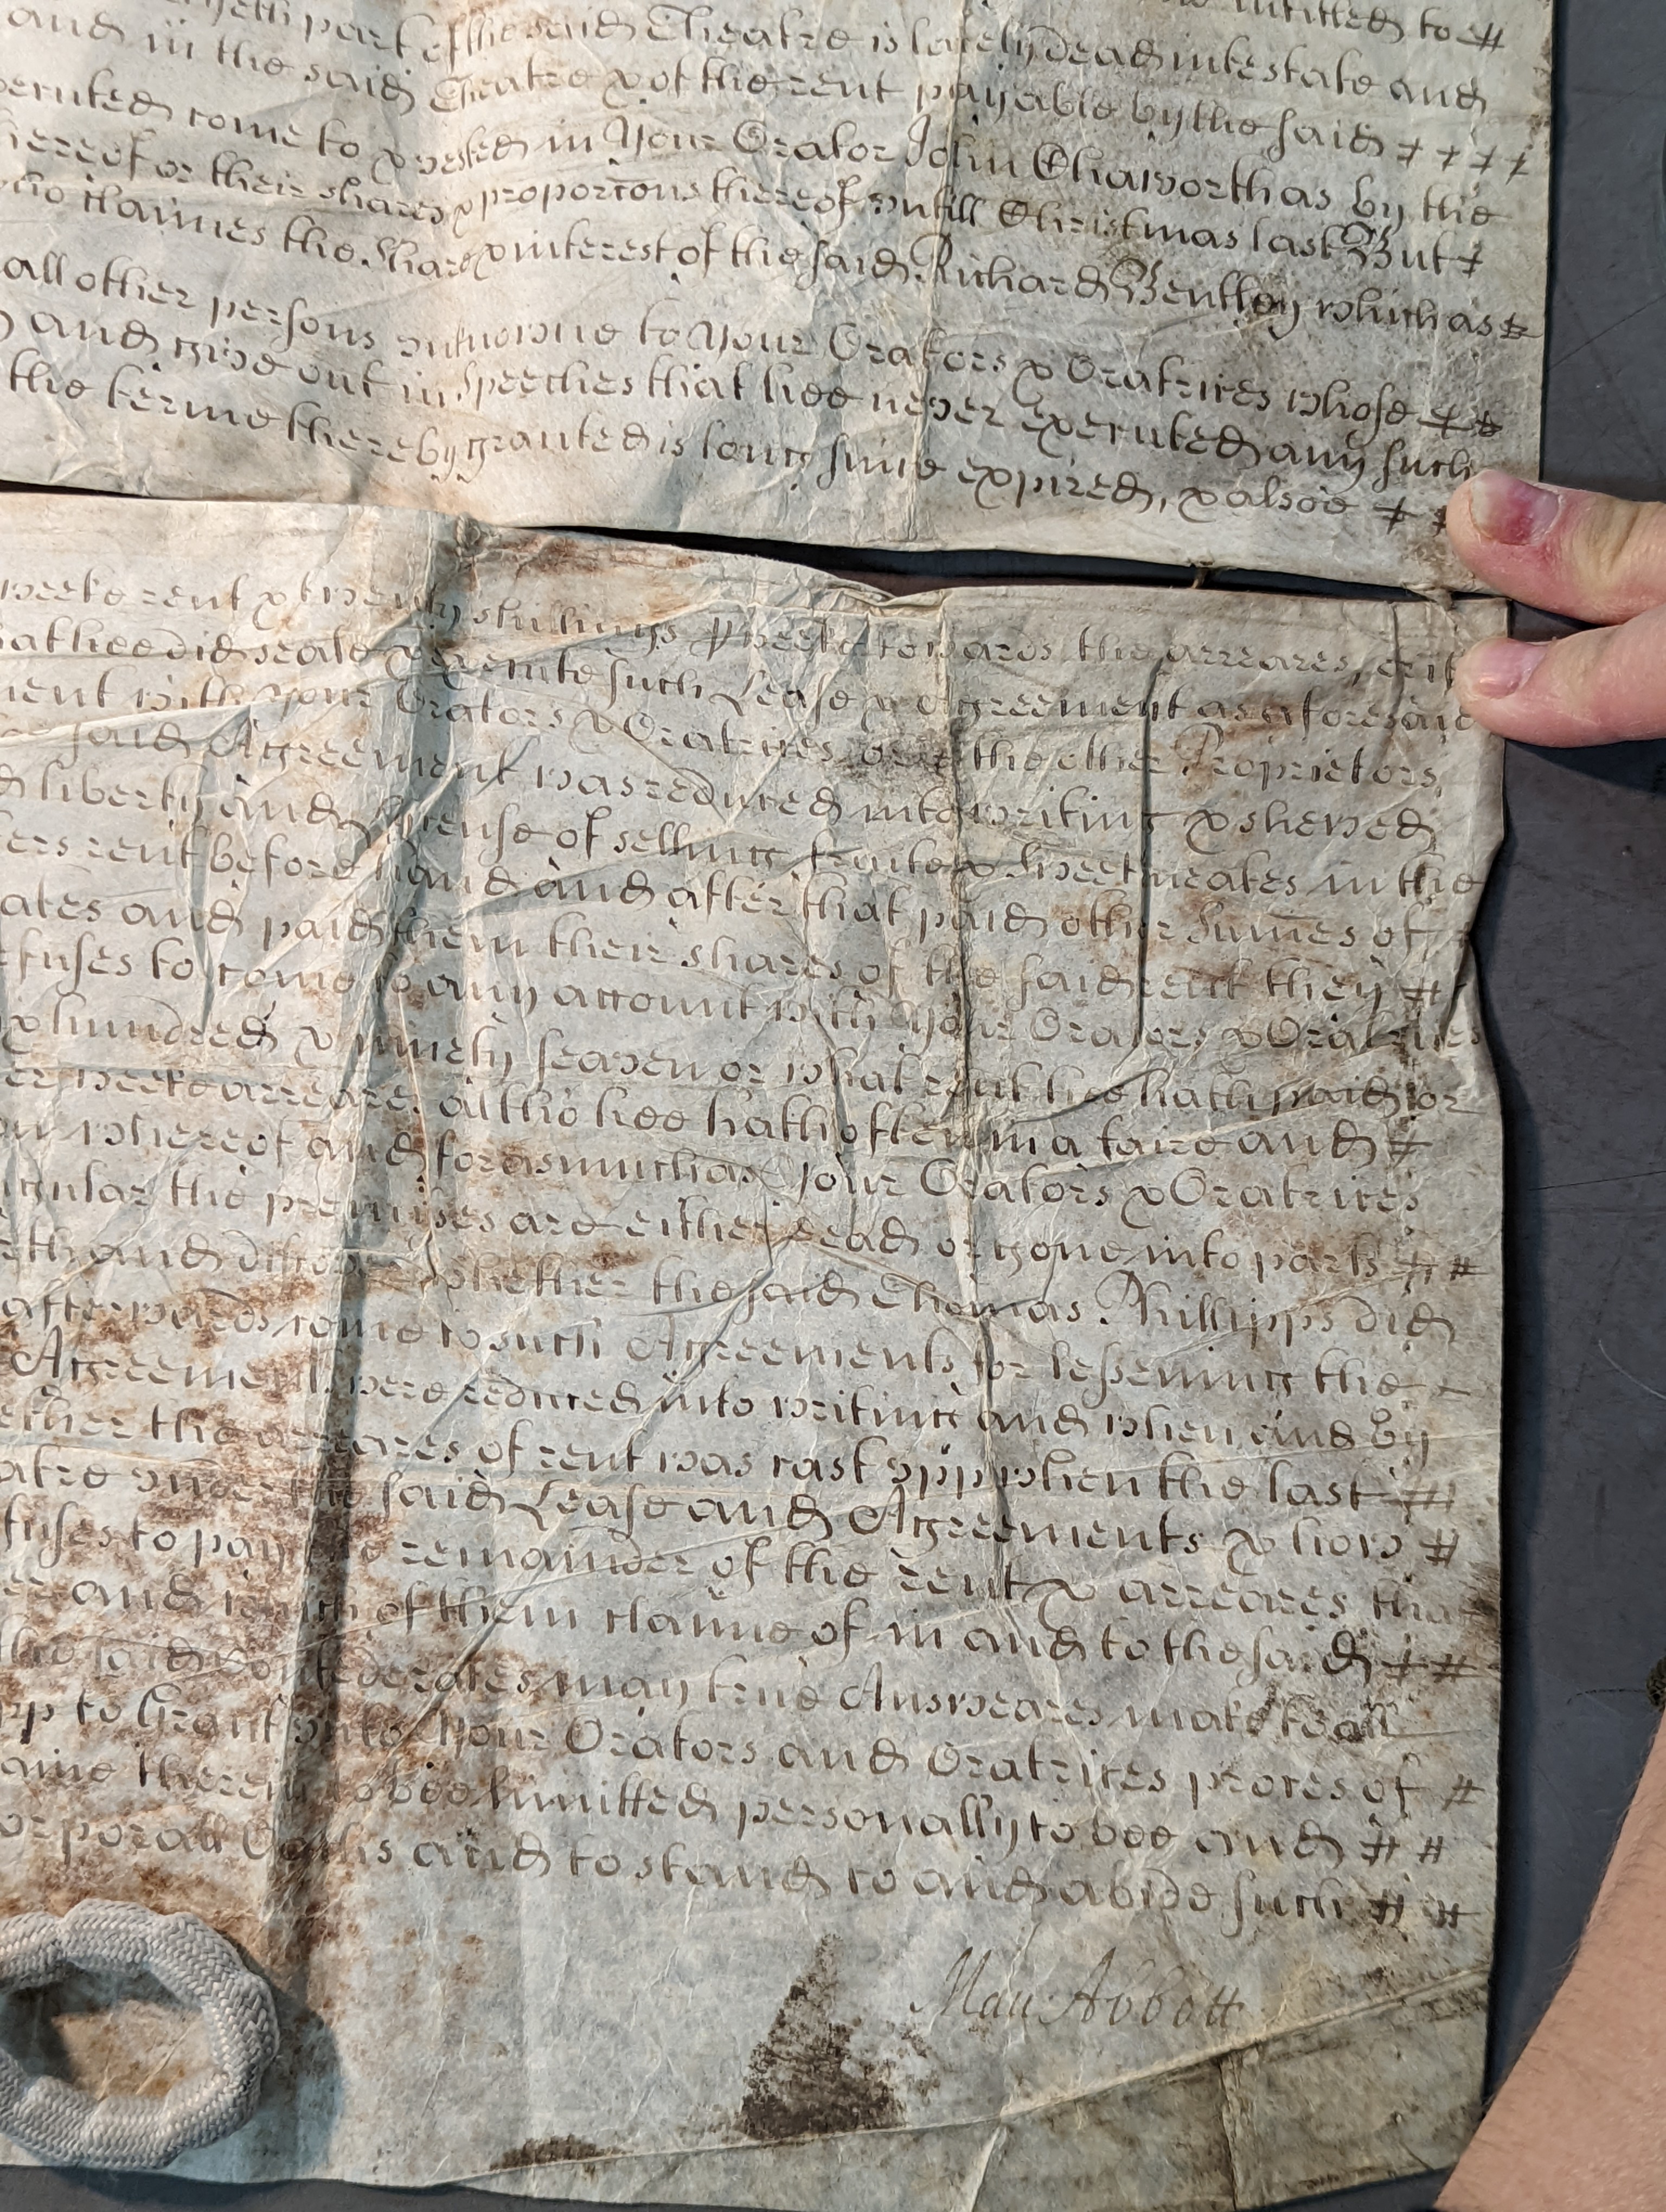 part of the said Theatre is lately dead intestate and
and in the said Theatre & of the rent payable by the said
come to & vested in Your Orator John Chaworth as by the
hereof or their shares & proporcons thereof untill Christmas last But
claimes the share & interest of the said Richard Bentley which as
all other persons unknowne to Your Orators & Oratrices whose
and give out in speeches that hee never executed any such
the terme thereby granted is long since expired, & alsoe
weeke rent & twenty shillings p weeke towards the arreares,
hat hee did seale & execute such Lease & Agreement as aforesaid
ment with Your Orators & Oratrices or the other Proprietors,
said Agreement was reduced into writing & shewed
liberty and lycense of selling fruite & sweetmeates in the
ers rent before hand and after that paid other summes of
ates and paid them their shares of the said rent they
efuses to come to any accompt with Your Orators & Oratrices
& hundred & ninety seaven or what rent hee hath paid or
er weeke arreare. altho hee hath often in a faire and
whereof and forasmuch as Your Orators & Oratrices
ingular the premises are either dead or gone into parts
th and discover whether the said Thomas Phillipps did
afterwards come to such Agreements for lessening the
Agreements were reduced into writing and when and by
ether the arreares of rent was cast upp when the last
atre under the said Lease and Agreements & how
fuses to pay the remainder of the rent & arreares that
er and each of them claime of in and to the said
the said Confederates may true Answeares make to all
pp to Grant unto Your Orators and Oratrices proces of
aine therein to bee limitted personally to bee and
orporall Oaths and to stand to and abide such
Mau: Abbott